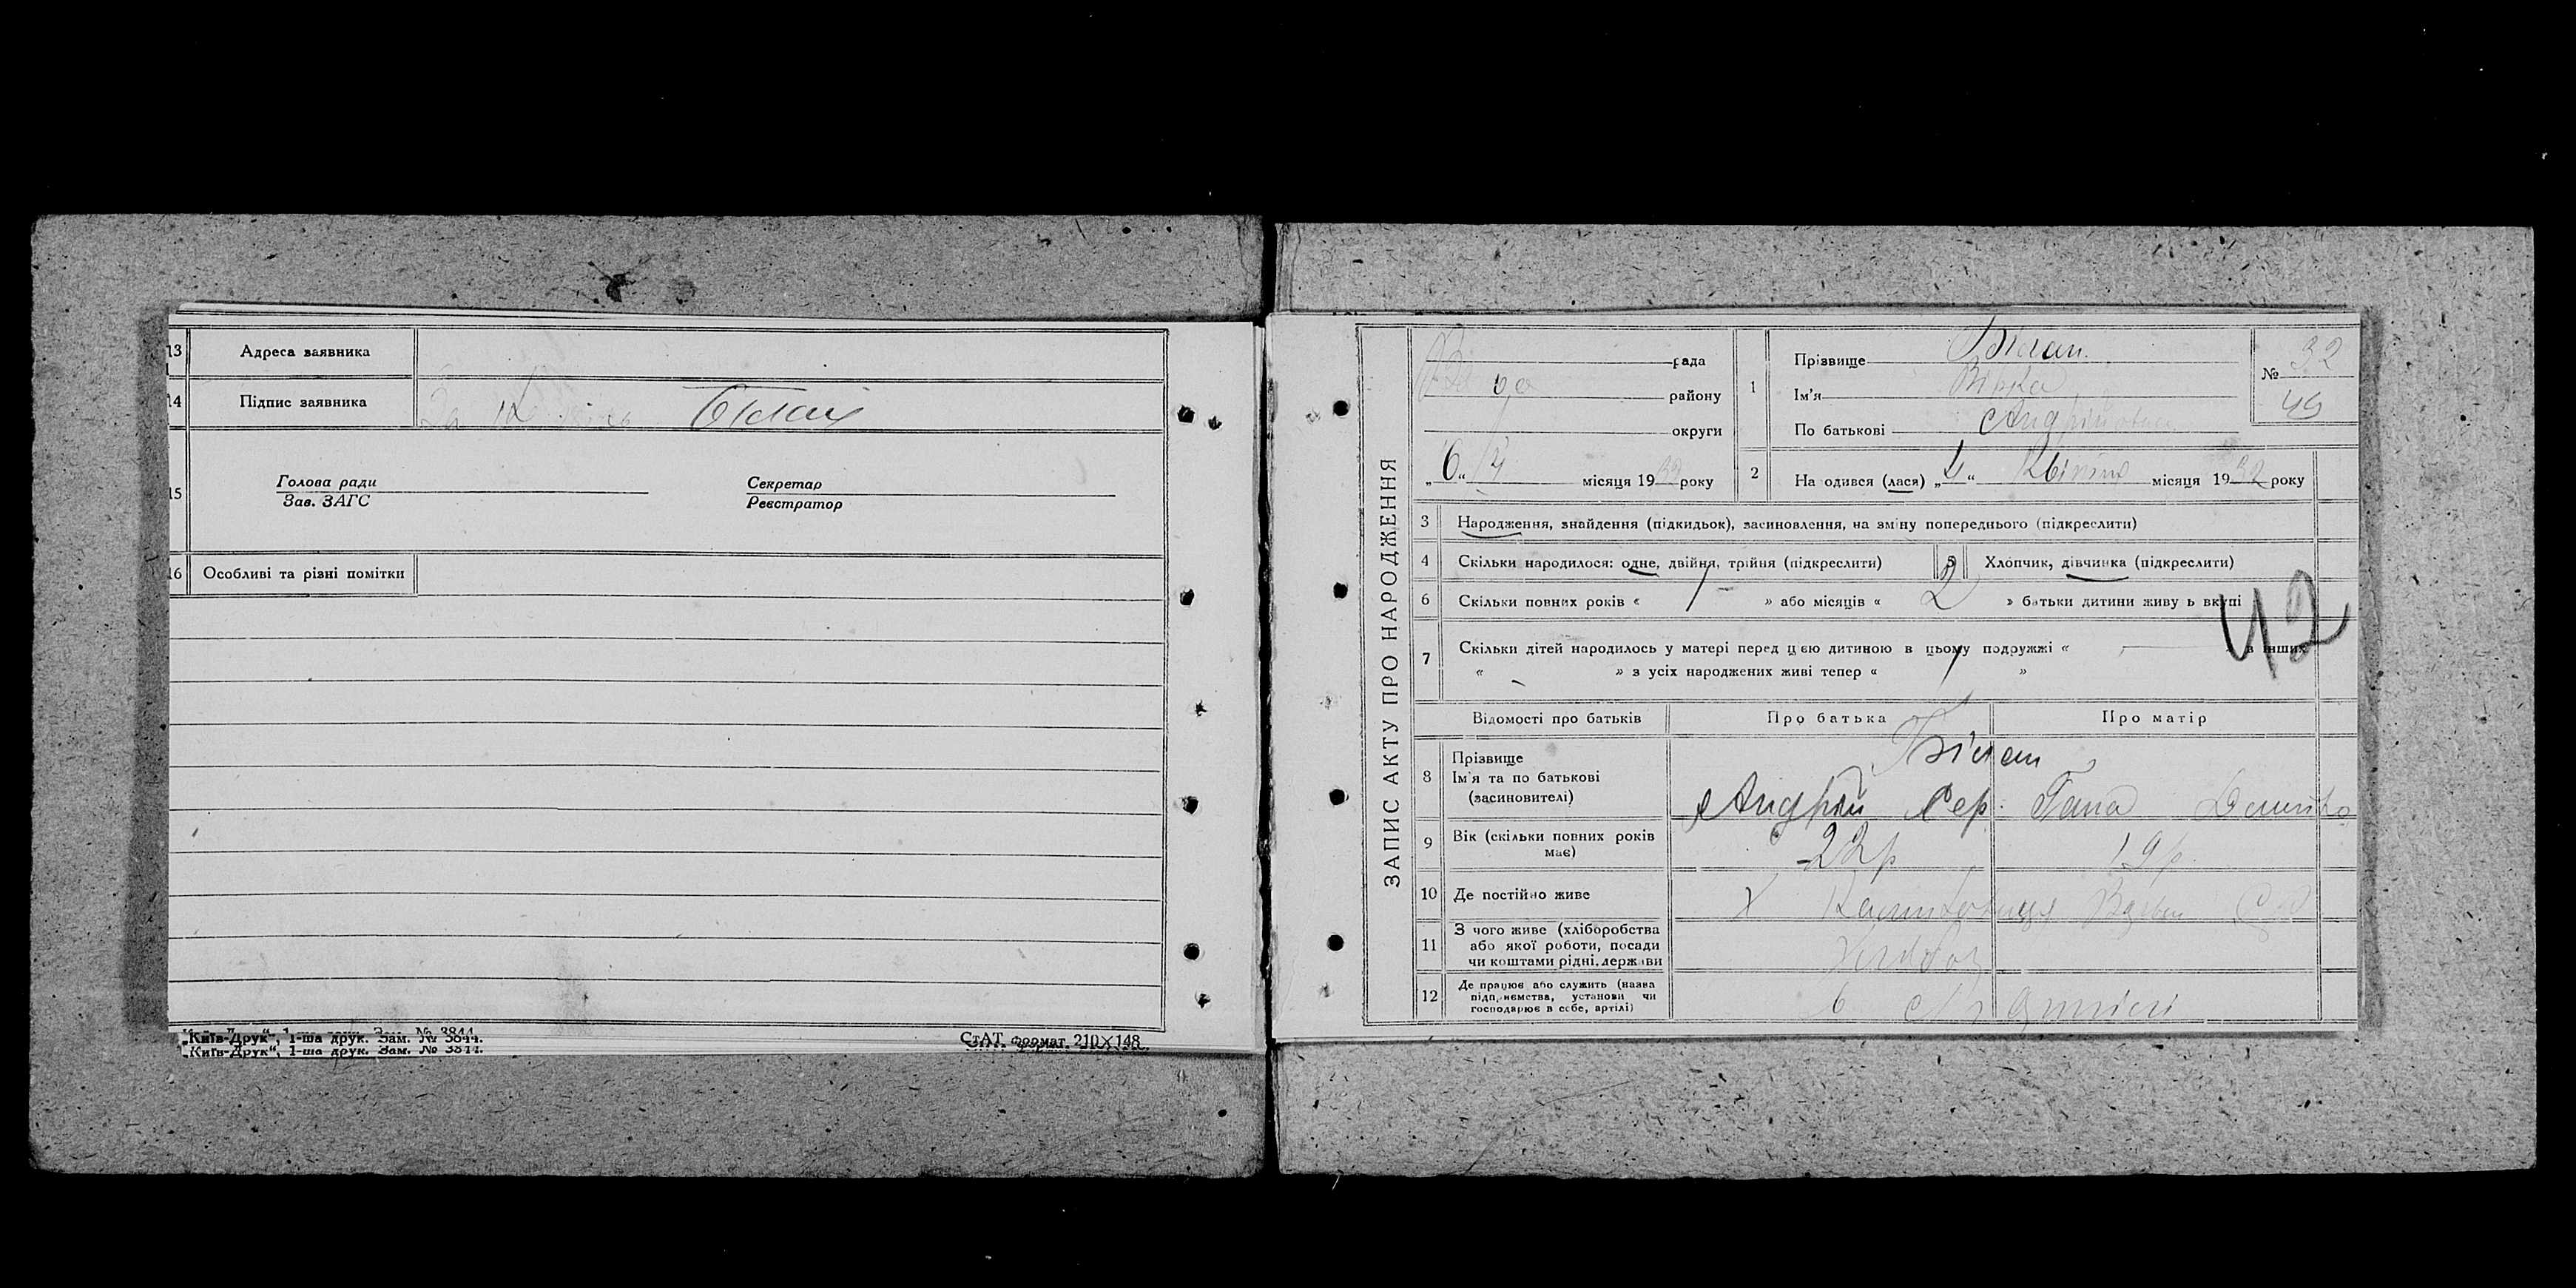 13 Адреса заявника
14 Підпис заявника За Білан
15 Голова ради Секретар
Зав. ЗАГС Реєстратор
16 Особливі та різні помітки
„Київ-Друк“, 1-ша друк. Зам. № 3844.
„Київ-Друк“, 1-ша друк. Зам. № 3844.
СтАТ формат 210×148
ЗАПИС АКТУ ПРО НАРОДЖЕННЯ
рада
району
округи
„6“ IV місяця 1932 року
1 Прізвище Білан
Ім'я Вірка
По батькові Андріївна
№ 32
49
2 На одився (лася) „4“ Квітня місяця 1932 року
3 Народження, знайдення (підкидьок), засиновлення, на зміну попереднього (підкреслити)
4 Скільки народилося: одне, двійня, трійня (підкреслити) 5 Хлопчик, дівчинка (підкреслити)
6 Скільки повних років « 1 » або місяців « 2 » батьки дитини живу ь вкупі
42
7 Скільки дітей народилось у матері перед цією дитиною в цьому подружжі « — » в інших
« - » з усіх народжених живі тепер « 1 »
Відомості про батьків Про батька Про матір
8 Прізвище Білан
Ім'я та по батькові
(засиновителі) Андрій Сер. Гана
9 Вік (скільки повних років має) 22р 19р.
10 Де постійно живе Х
11 З чого живе (хліборобства
або якої роботи, посади
чи коштами рідні, держави
12 Де працює або служить (назва
підприємства, установи чи
господарює в себе, артілі) в